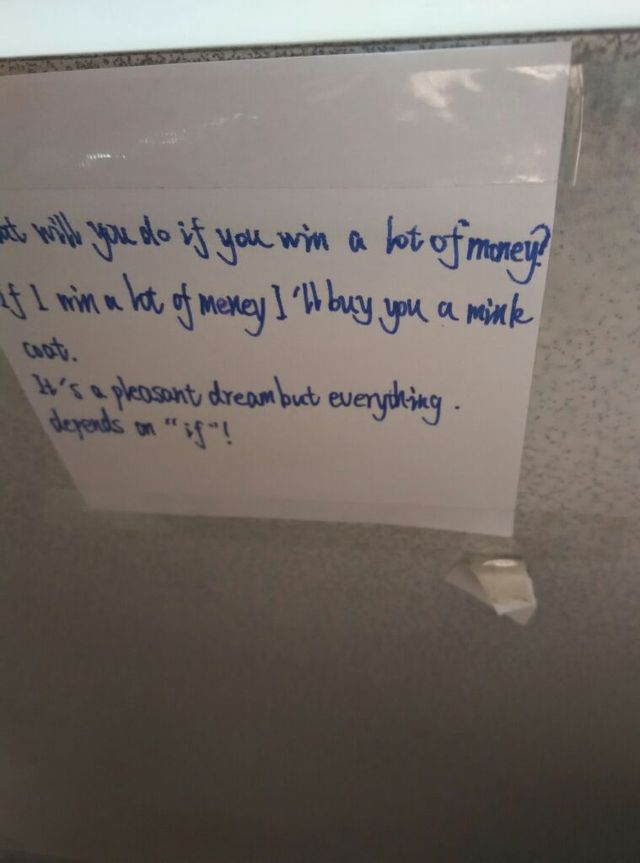 at will you do if you win a lot of money?
if I win a lot of meney I'll buy you a mink
coat.
It's a pleasant dream but everything.
depends on "if"!